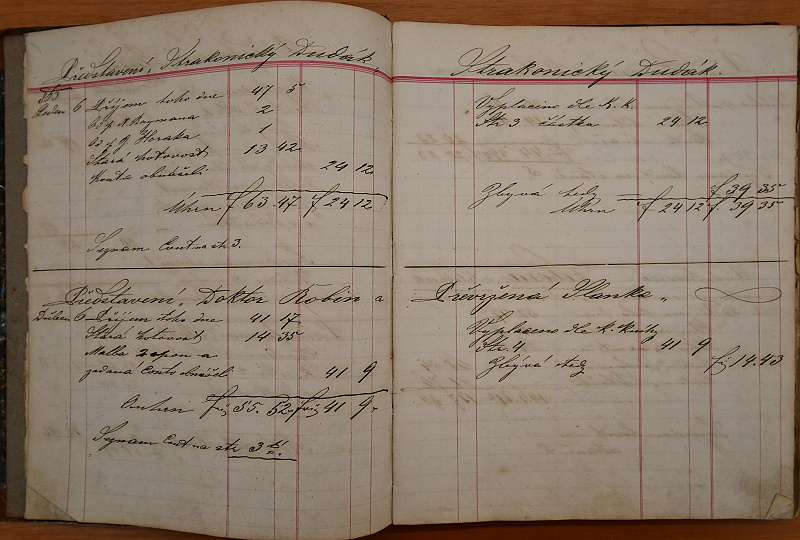 Představení, Strakonický Dudák
6 Příjem toho dne 47 5
Od p. N. Naymana 2
Od p. J. Horaka 1
Stará hotovost 13 42
Konta obnášeli 24 12
Úhrn f 63 47 f 24 12
Seznam Cont na str 3.
Představení, Doktor Robin a
Duben 6 Příjem toho dne 41 17
Stará hotovost 14 35
Malba opon a
zadaná Conto obnášeli 41 9
f 55. 52 41 9
Seznam Cont na str 3
Strakonický Dudák.
Vyplaceno dle K. k.
Str 3 částka 24 12
Zbývá tedy f 39 35
Uhrn f 24 12 f. 39 35
Převržená Planka „
Vyplaceno dle k. knihy
Str. 4. 41 9
Zbývá tedy 14.43